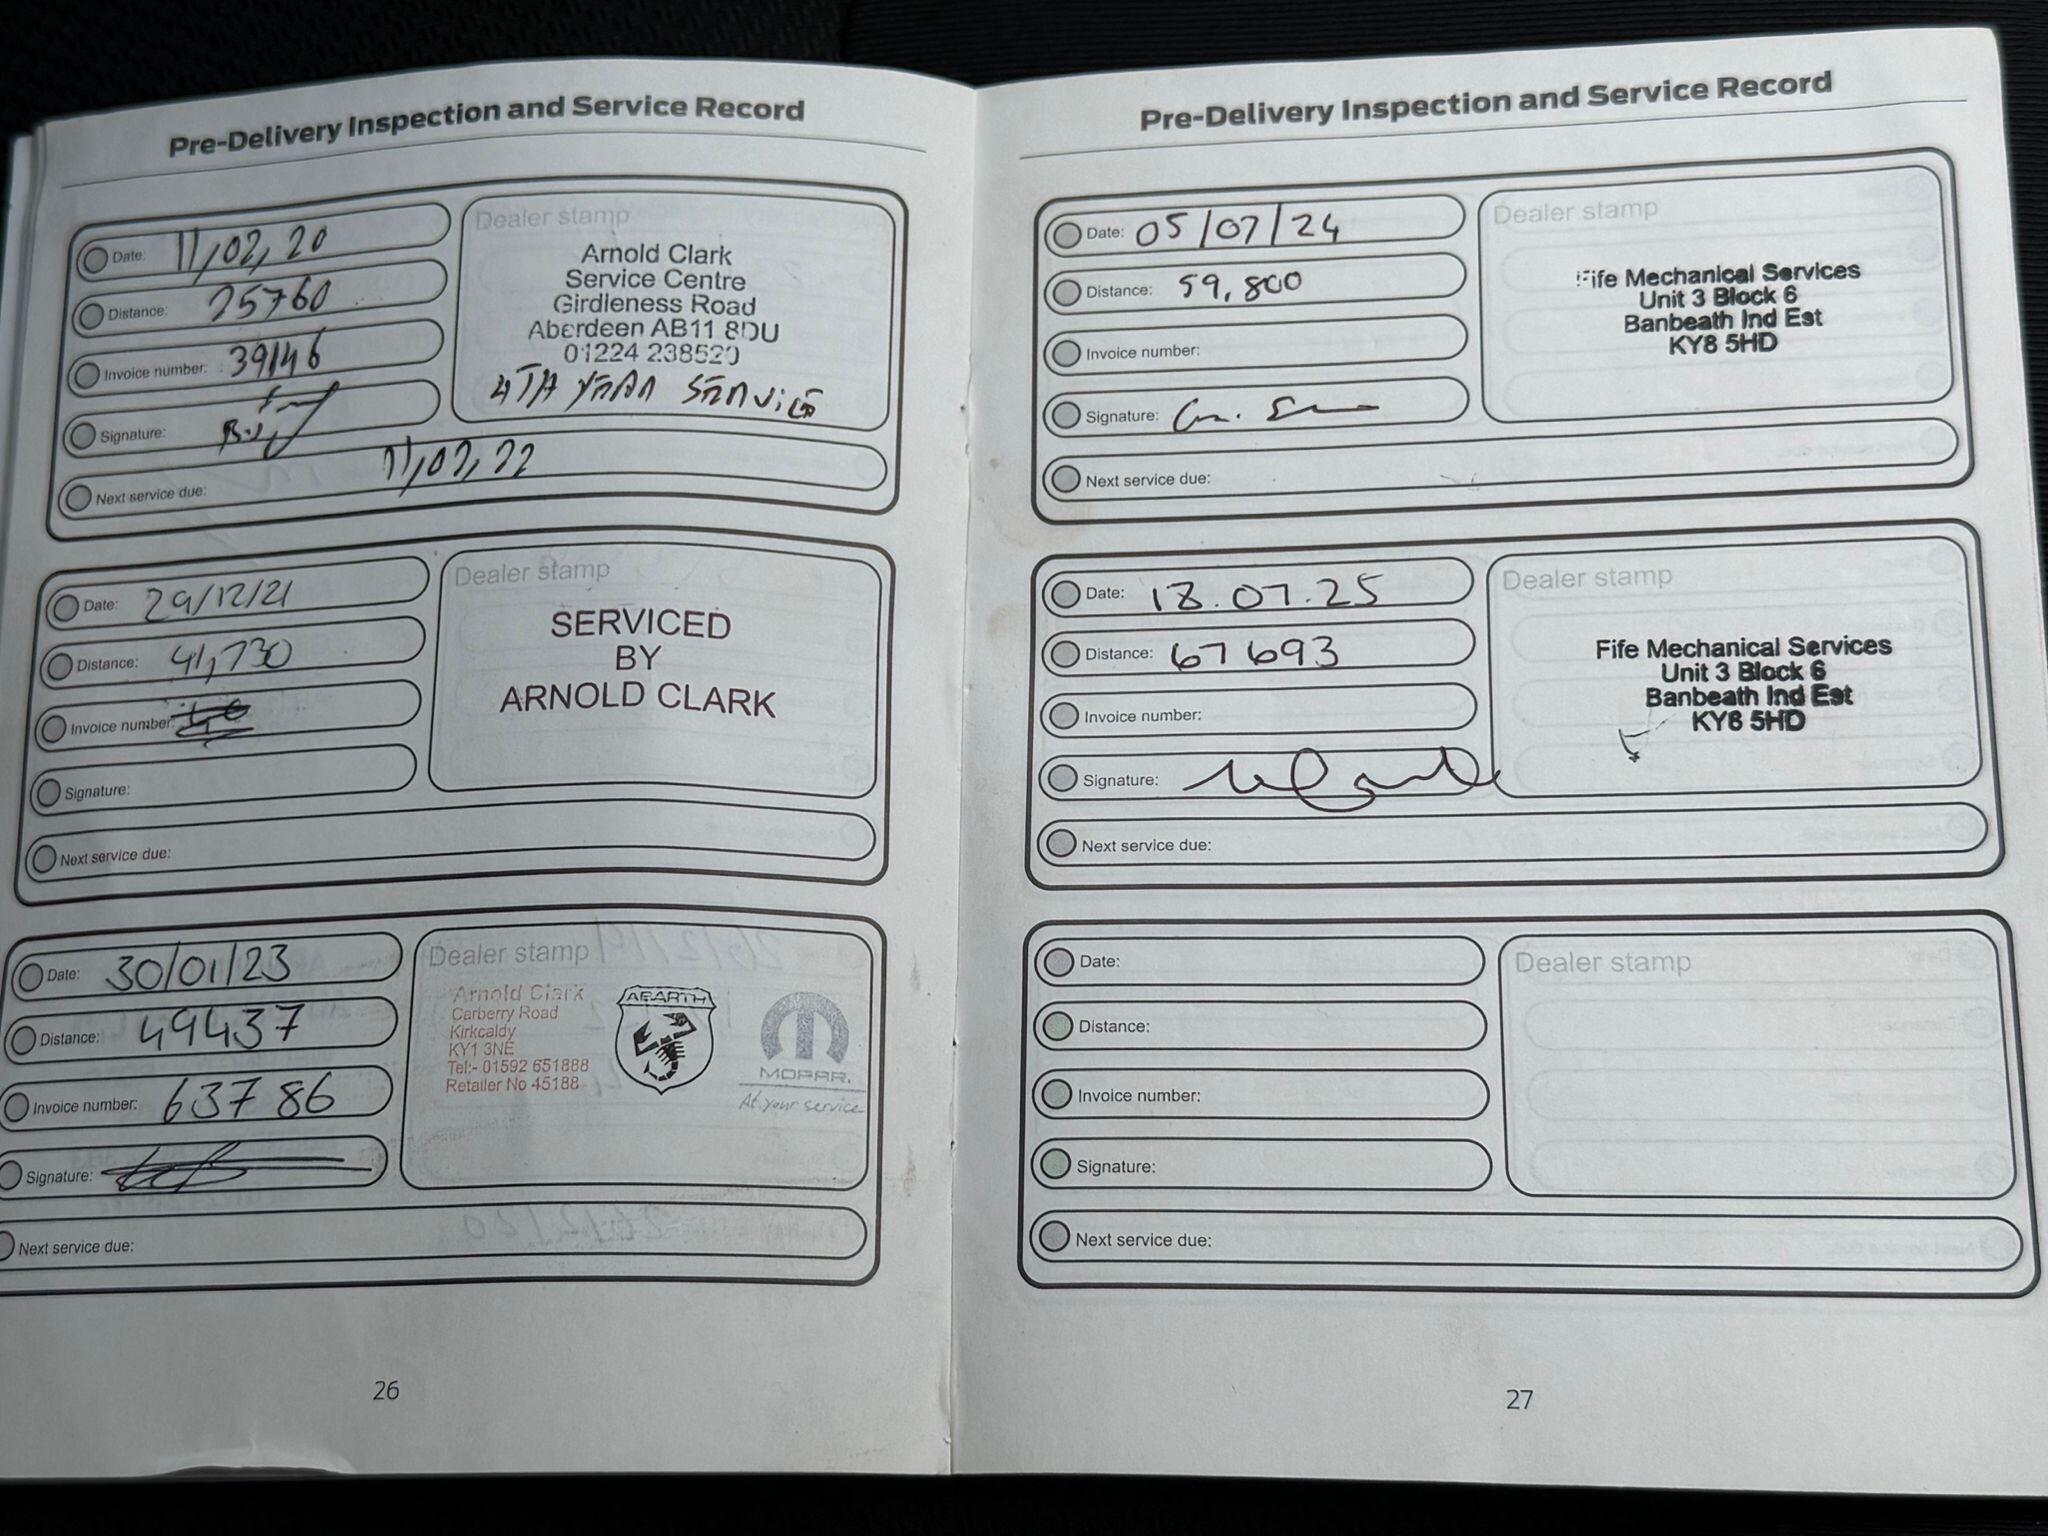 Pre-Delivery Inspection and Service Record
Date: 11/02/20
Distance: 25760
Invoice number: 39146
Signature:
Next service due: 11/02/22
Dealer stamp
Arnold Clark
Service Centre
Girdleness Road
Aberdeen AB11 8DU
01224 238520
4TH YEAR SERVICE
Date: 29/12/21
Distance: 41,730
Invoice number:
Signature:
Next service due:
Dealer stamp
SERVICED
BY
ARNOLD CLARK
Date: 30/01/23
Distance: 49437
Invoice number: 63786
Signature:
Next service due:
Dealer stamp
Arnold Clark
Carberry Road
Kirkcaldy
KY1 3NE
Tel:- 01592 651888
Retailer No 45188
ABARTH
MOPAR.
At your service
26
Pre-Delivery Inspection and Service Record
Date: 05/07/24
Distance: 59,800
Invoice number:
Signature:
Next service due:
Dealer stamp
Fife Mechanical Services
Unit 3 Block 6
Banbeath Ind Est
KY8 5HD
Date: 18.07.25
Distance: 67693
Invoice number:
Signature:
Next service due:
Dealer stamp
Fife Mechanical Services
Unit 3 Block 6
Banbeath Ind Est
KY8 5HD
Date:
Distance:
Invoice number:
Signature:
Next service due:
Dealer stamp
27